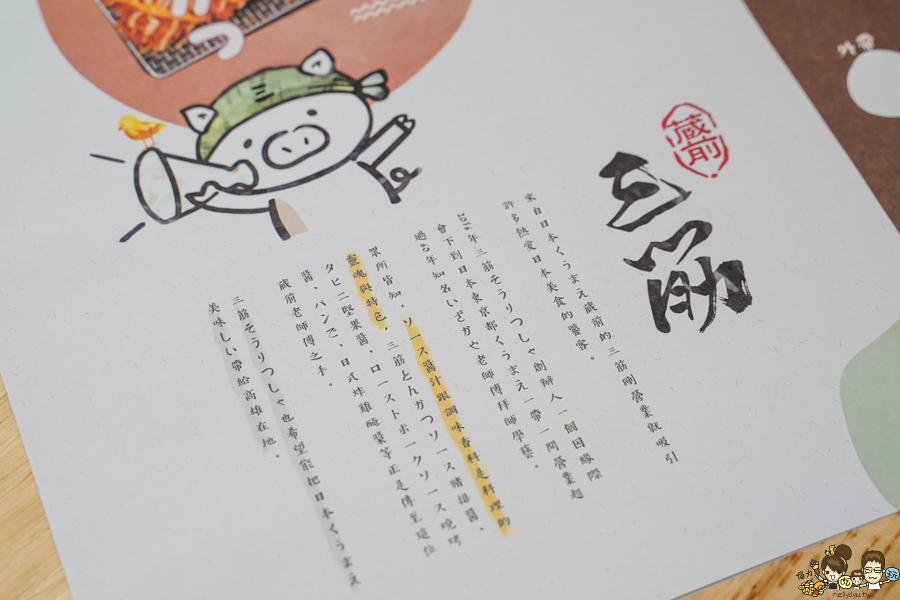 蔵前
三筋
來自日本くうまえ蔵前的三筋剛營業就吸引
許多熱愛日本美食的饕客。
三筋そうりつしゃ創辦人一個因緣際
會下到日本東京都くうまえ一帶一間營業超
過40年知名いざかや老師傅拜師學藝。
眾所皆知,ソース醬汁跟調味香料是料理的
靈魂與特色,三筋とんかつソース豬排醬、
タヒニ堅果醬、ローストポークソース燒烤
醬、パンで、日式炸雞醃漿等正是傳至這位
蔵前老師傅之手。
三筋そうりつしゃ也希望能把日本くうまえ
美味しい帶給高雄在地。
三
外帶